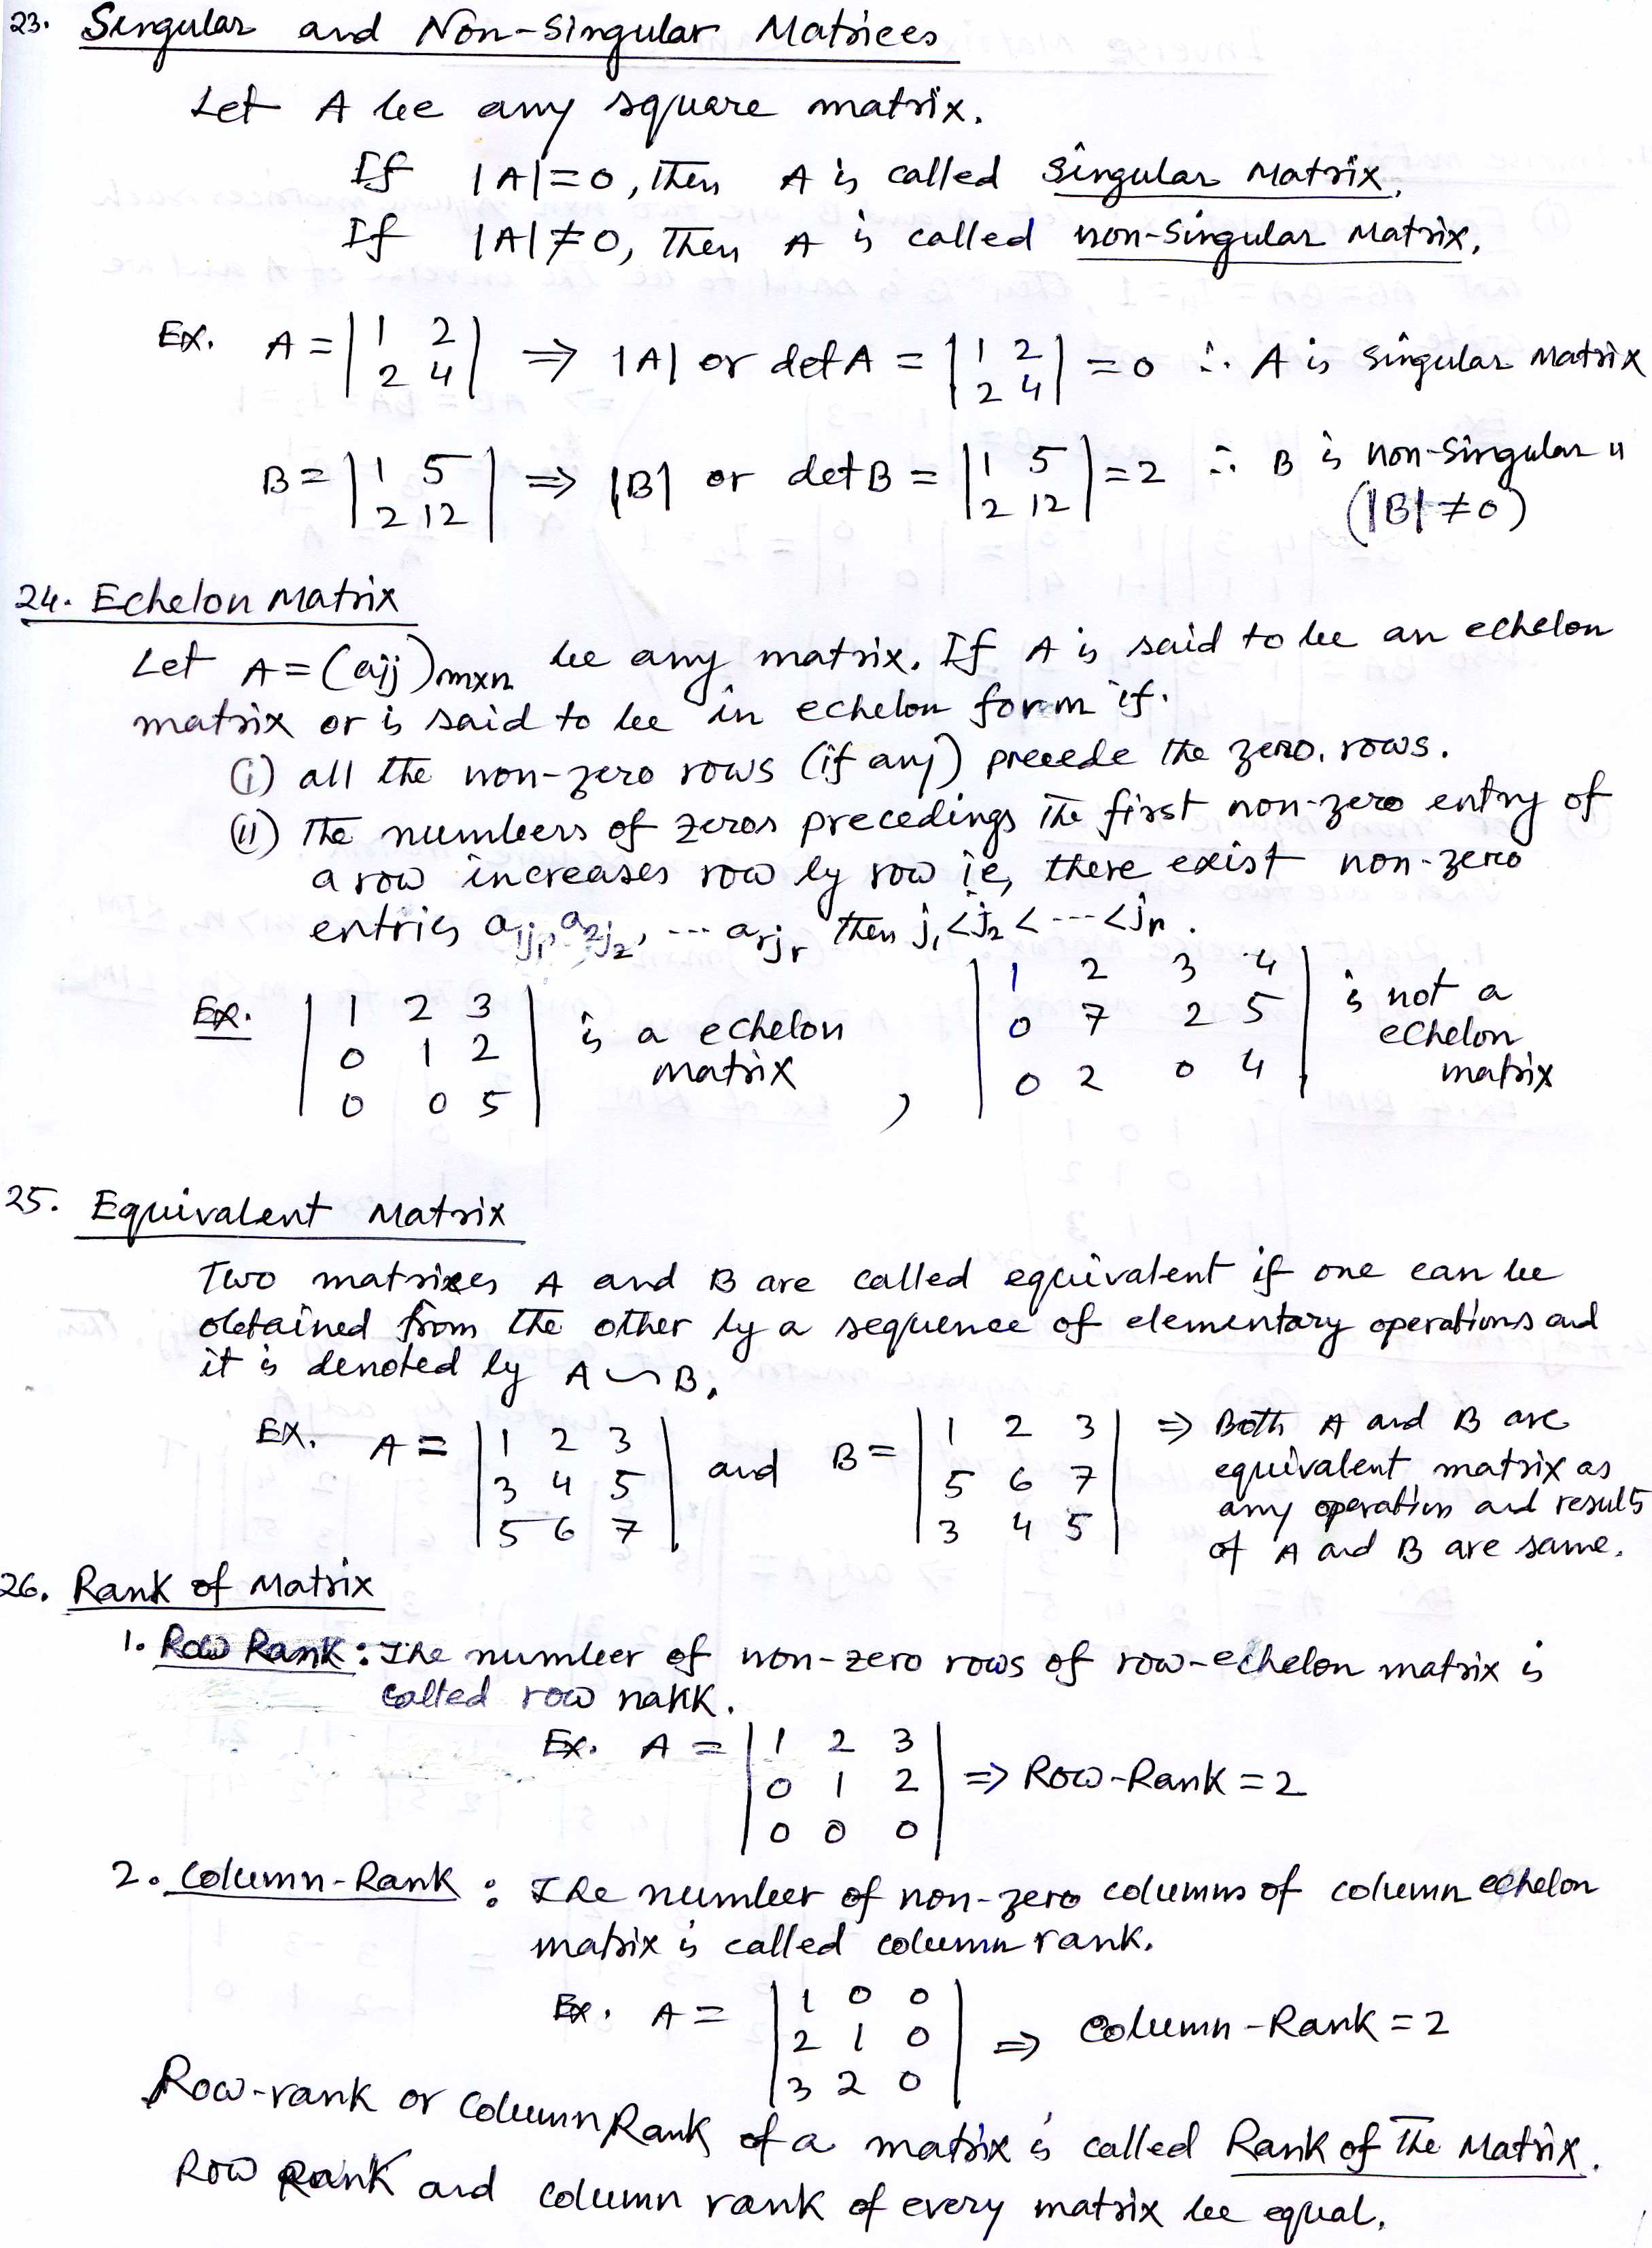 23. Singular and Non-Singular Matrices
Let A be any square matrix.
If |A|=0, then A is called Singular Matrix.
If |A|≠0, then A is called non-Singular Matrix.
Ex. A = | 1 2 | ⇒ |A| or det A = | 1 2 | = 0 ∴ A is Singular Matrix
| 2 4 | | 2 4 |
B = | 1 5 | ⇒ |B| or det B = | 1 5 | = 2 ∴ B is non-Singular "
| 2 12 | | 2 12 | (|B| ≠ 0)
24. Echelon Matrix
Let A = (aij)mxn be any matrix. If A is said to be an echelon
matrix or is said to be in echelon form if.
(i) all the non-zero rows (if any) precede the zero. rows.
(ii) The numbers of zeros precedings the first non-zero entry of
a row increases row by row ie, there exist non-zero
entries a1j1, a2j2, --- arjr then j1<j2< ---<jr.
Ex. | 1 2 3 | is a echelon matrix , | 1 2 3 4 | is not a
| 0 1 2 | | 0 7 2 5 | echelon
| 0 0 5 | | 0 2 0 4 | matrix
25. Equivalent Matrix
Two matrixes A and B are called equivalent if one can be
obtained from the other by a sequence of elementary operations and
it is denoted by A ∽ B.
Ex. A = | 1 2 3 | and B = | 1 2 3 | ⇒ Both A and B are
| 3 4 5 | | 5 6 7 | equivalent matrix as
| 5 6 7 | | 3 4 5 | any operation and results
of A and B are same.
26. Rank of Matrix
1. Row Rank : The number of non-zero rows of row-echelon matrix is
called row nakk.
Ex. A = | 1 2 3 |
| 0 1 2 | ⇒ Row-Rank = 2
| 0 0 0 |
2. Column-Rank : The number of non-zero columns of column echelon
matrix is called column rank.
Ex. A = | 1 0 0 |
| 2 1 0 | ⇒ Column-Rank = 2
| 3 2 0 |
Row-rank or Column Rank of a matrix is called Rank of The Matrix.
Row Rank and column rank of every matrix be equal.